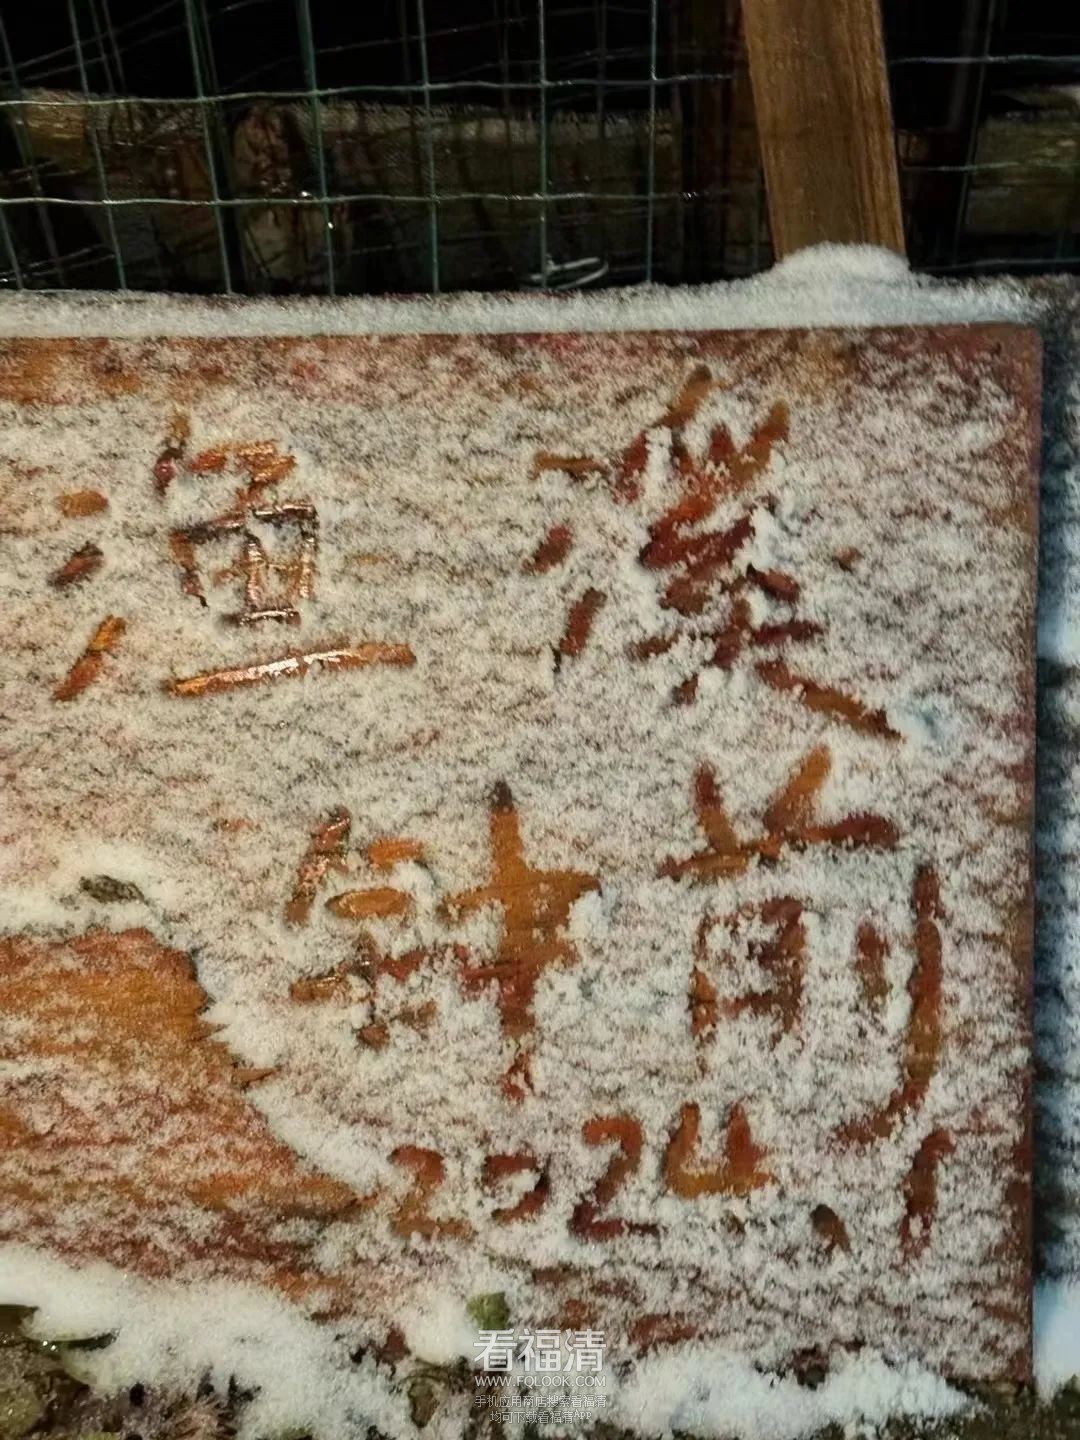 渔溪
钟前
2024.1
看福清
WWW.FQLOOK.COM
手机应用商店搜索看福清
均可下载看福清APP